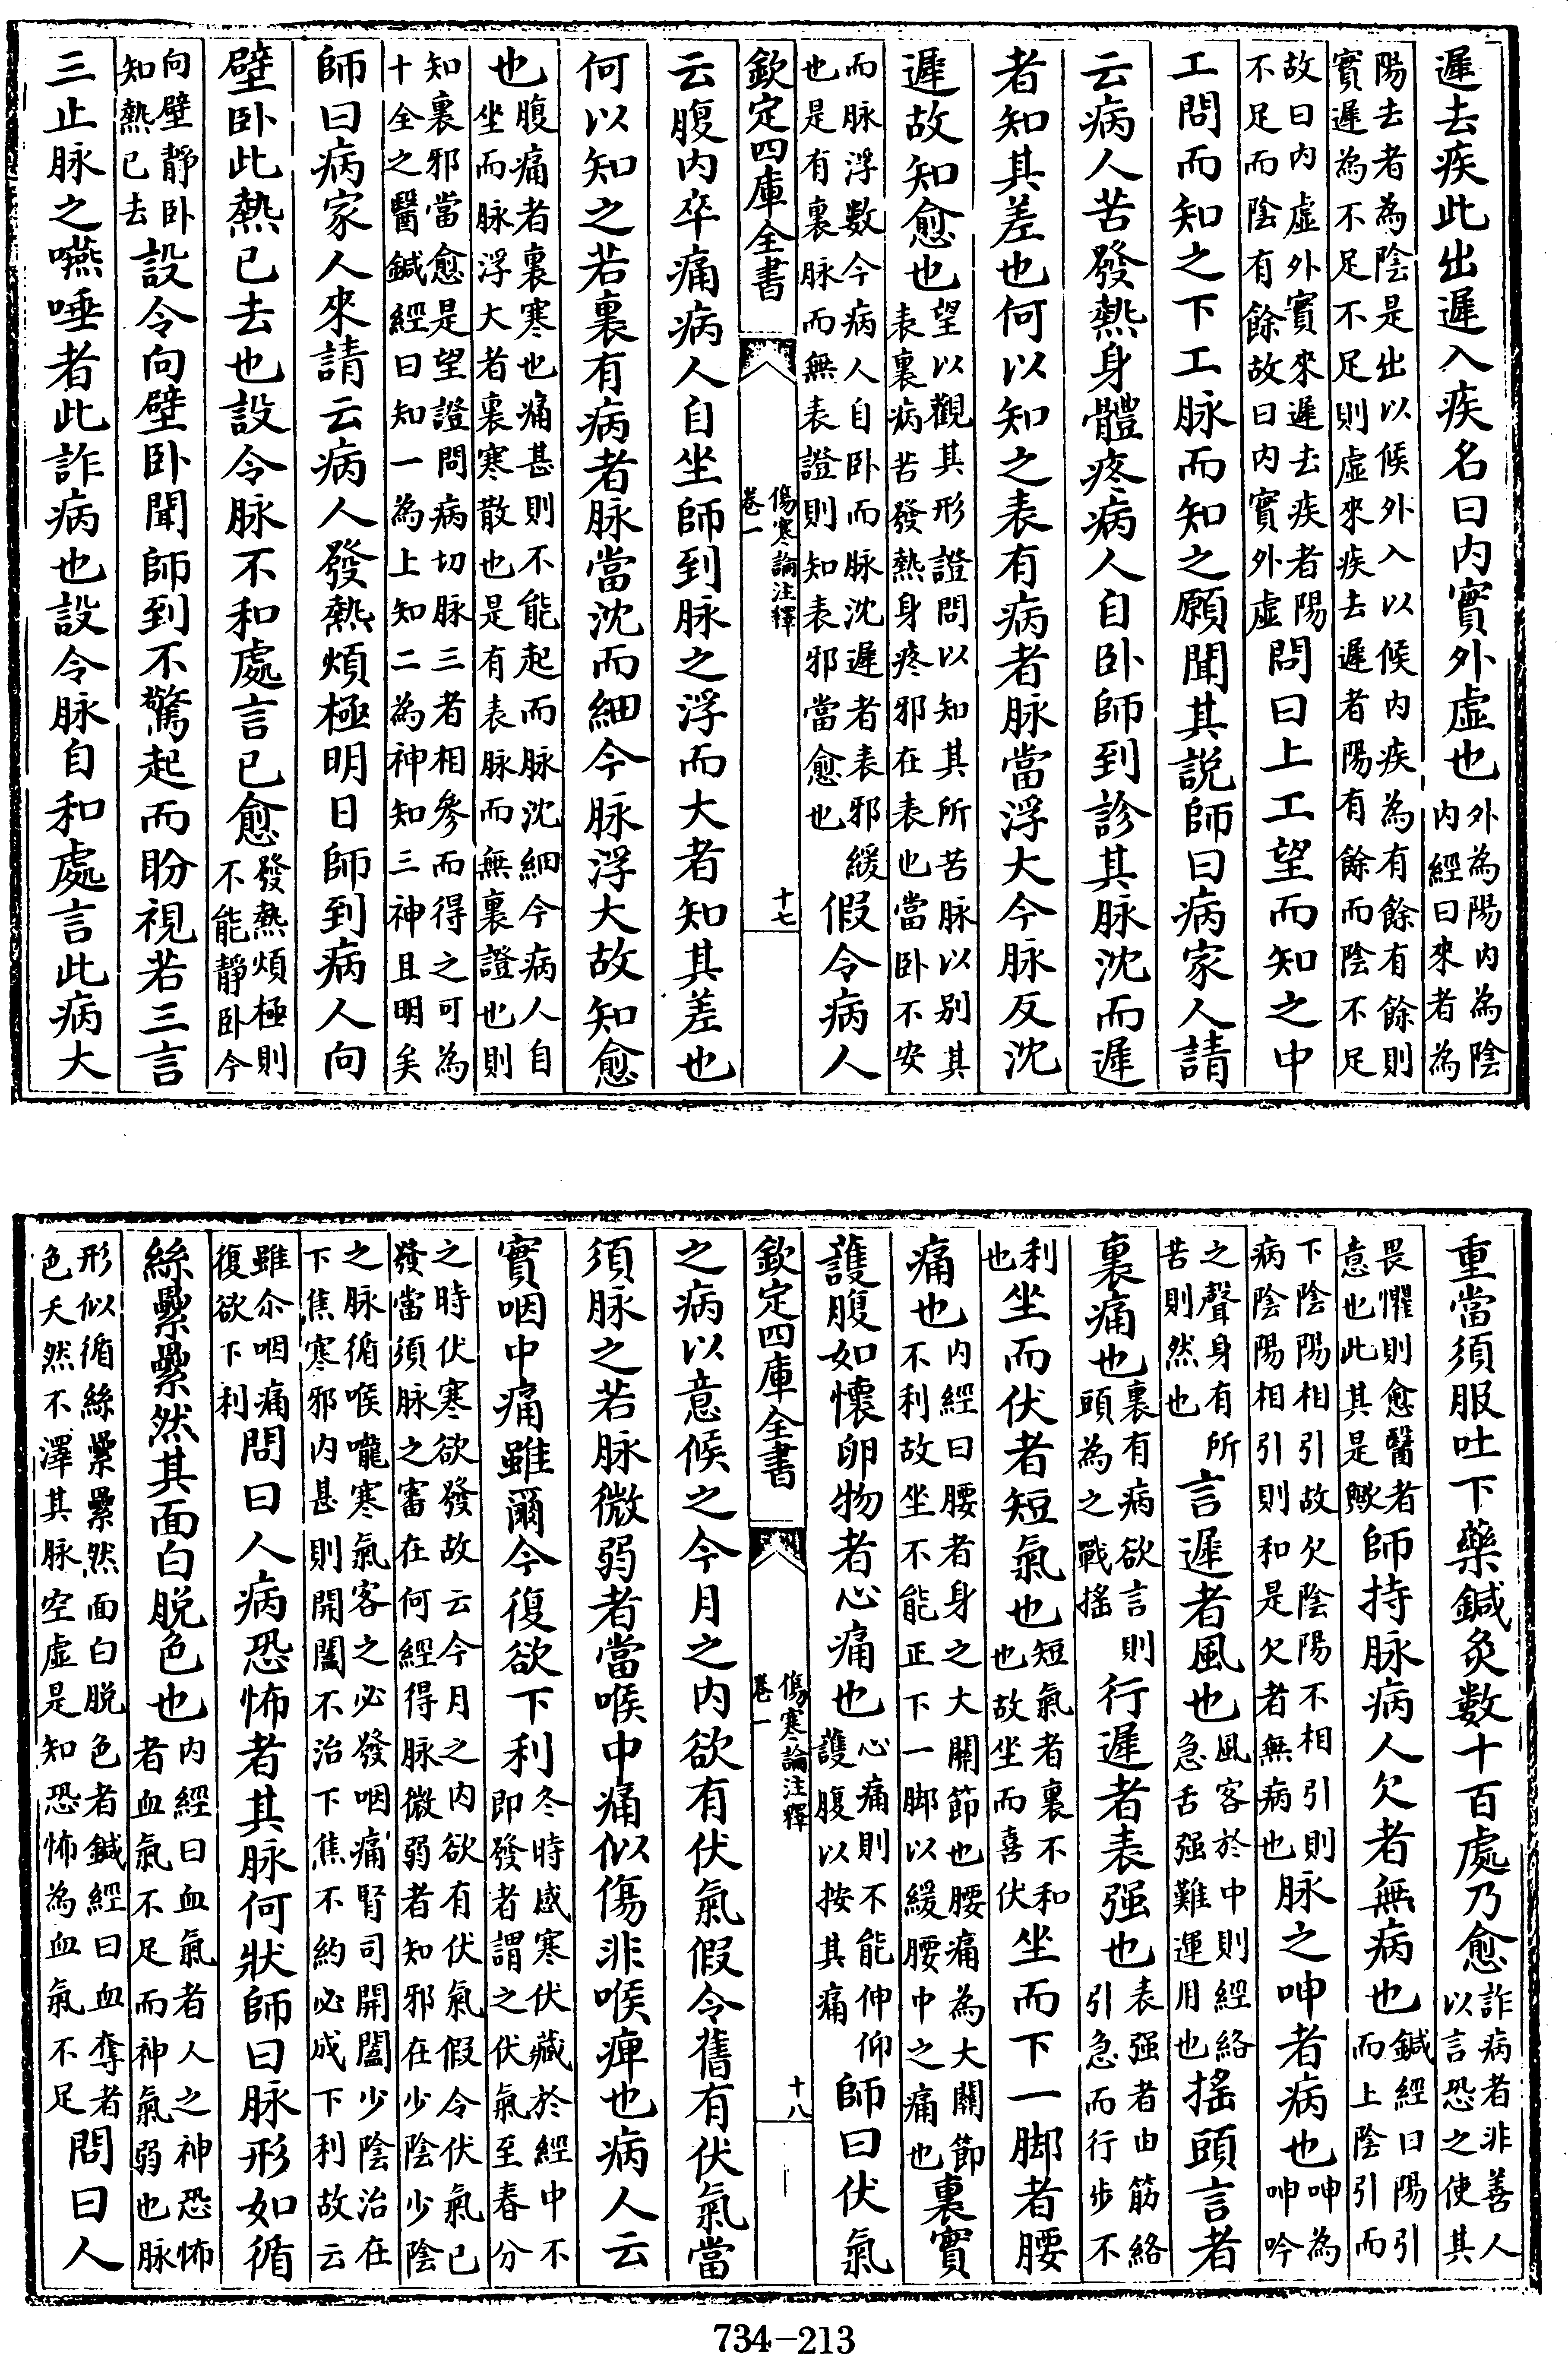 遲去疾此出遲入疾名曰内實外虛也外為陽内為陰内經曰來者為
陽去者為陰是出以候外入以候内疾為有餘有餘則實遲為不足不足則虛來疾去遲者陽有餘而陰不足
故曰内虛外實來遲去疾者陽不足而陰有餘故曰内實外虛問曰上工望而知之中
工問而知之下工脉而知之願聞其説師曰病家人請
云病人苦發熱身體疼病人自卧師到診其脉沈而遲
者知其差也何以知之表有病者脉當浮大今脉反沈
遲故知愈也望以觀其形證問以知其所苦脉以别其表裏病苦發熱身疼邪在表也當卧不安
而脉浮數今病人自卧而脉沈遲者表邪緩也是有裏脉而無表證則知表邪當愈也假令病人
欽定四庫全書 傷寒論注釋 卷一 十七
云腹内卒痛病人自坐師到脉之浮而大者知其差也
何以知之若裏有病者脉當沈而細今脉浮大故知愈
也腹痛者裏寒也痛甚則不能起而脉沈細今病人自坐而脉浮大者裏寒散也是有表脉而無裏證也則
知裏邪當愈是望證問病切脉三者相參而得之可為十全之醫鍼經曰知一為上知二為神知三神且明矣
師曰病家人來請云病人發熱煩極明日師到病人向
壁卧此熱已去也設令脉不和處言已愈發熱煩極則不能靜卧今
向壁靜卧知熱已去設令向壁卧聞師到不驚起而盻視若三言
三止脉之嚥唾者此詐病也設令脉自和處言此病大
重當須服吐下藥鍼灸數十百處乃愈詐病者非善人以言恐之使其
畏懼則愈醫者意也此其是歟師持脉病人欠者無病也鍼經曰陽引而上陰引而
下陰陽相引故欠陰陽不相引則病陰陽相引則和是欠者無病也脉之呻者病也呻為呻吟
之聲身有所苦則然也言遲者風也風客於中則經絡急舌强難運用也搖頭言者
裏痛也裏有病欲言則頭為之戰搖行遲者表强也表强者由筋絡引急而行步不
利也坐而伏者短氣也短氣者裏不和也故坐而喜伏坐而下一脚者腰
痛也内經曰腰者身之大關節也腰痛為大關節不利故坐不能正下一脚以緩腰中之痛也裏實
護腹如懷卵物者心痛也心痛則不能伸仰護腹以按其痛師曰伏氣
欽定四庫全書 傷寒論注釋 卷一 十八
之病以意候之今月之内欲有伏氣假令舊有伏氣當
須脉之若脉微弱者當喉中痛似傷非喉痺也病人云
實咽中痛雖爾今復欲下利冬時感寒伏藏於經中不即發者謂之伏氣至春分
之時伏寒欲發故云今月之内欲有伏氣假令伏氣已發當須脉之審在何經得脉微弱者知邪在少陰少陰
之脉循喉嚨寒氣客之必發咽痛腎司開闔少陰治在下焦寒邪内甚則開闔不治下焦不約必成下利故云
雖尒咽痛復欲下利問曰人病恐怖者其脉何狀師曰脉形如循
絲纍纍然其面白脱色也内經曰血氣者人之神恐怖者血氣不足而神氣弱也脉
形似循絲纍纍然面白脱色者鍼經曰血奪者色夭然不澤其脉空虛是知恐怖為血氣不足問曰人
734-213